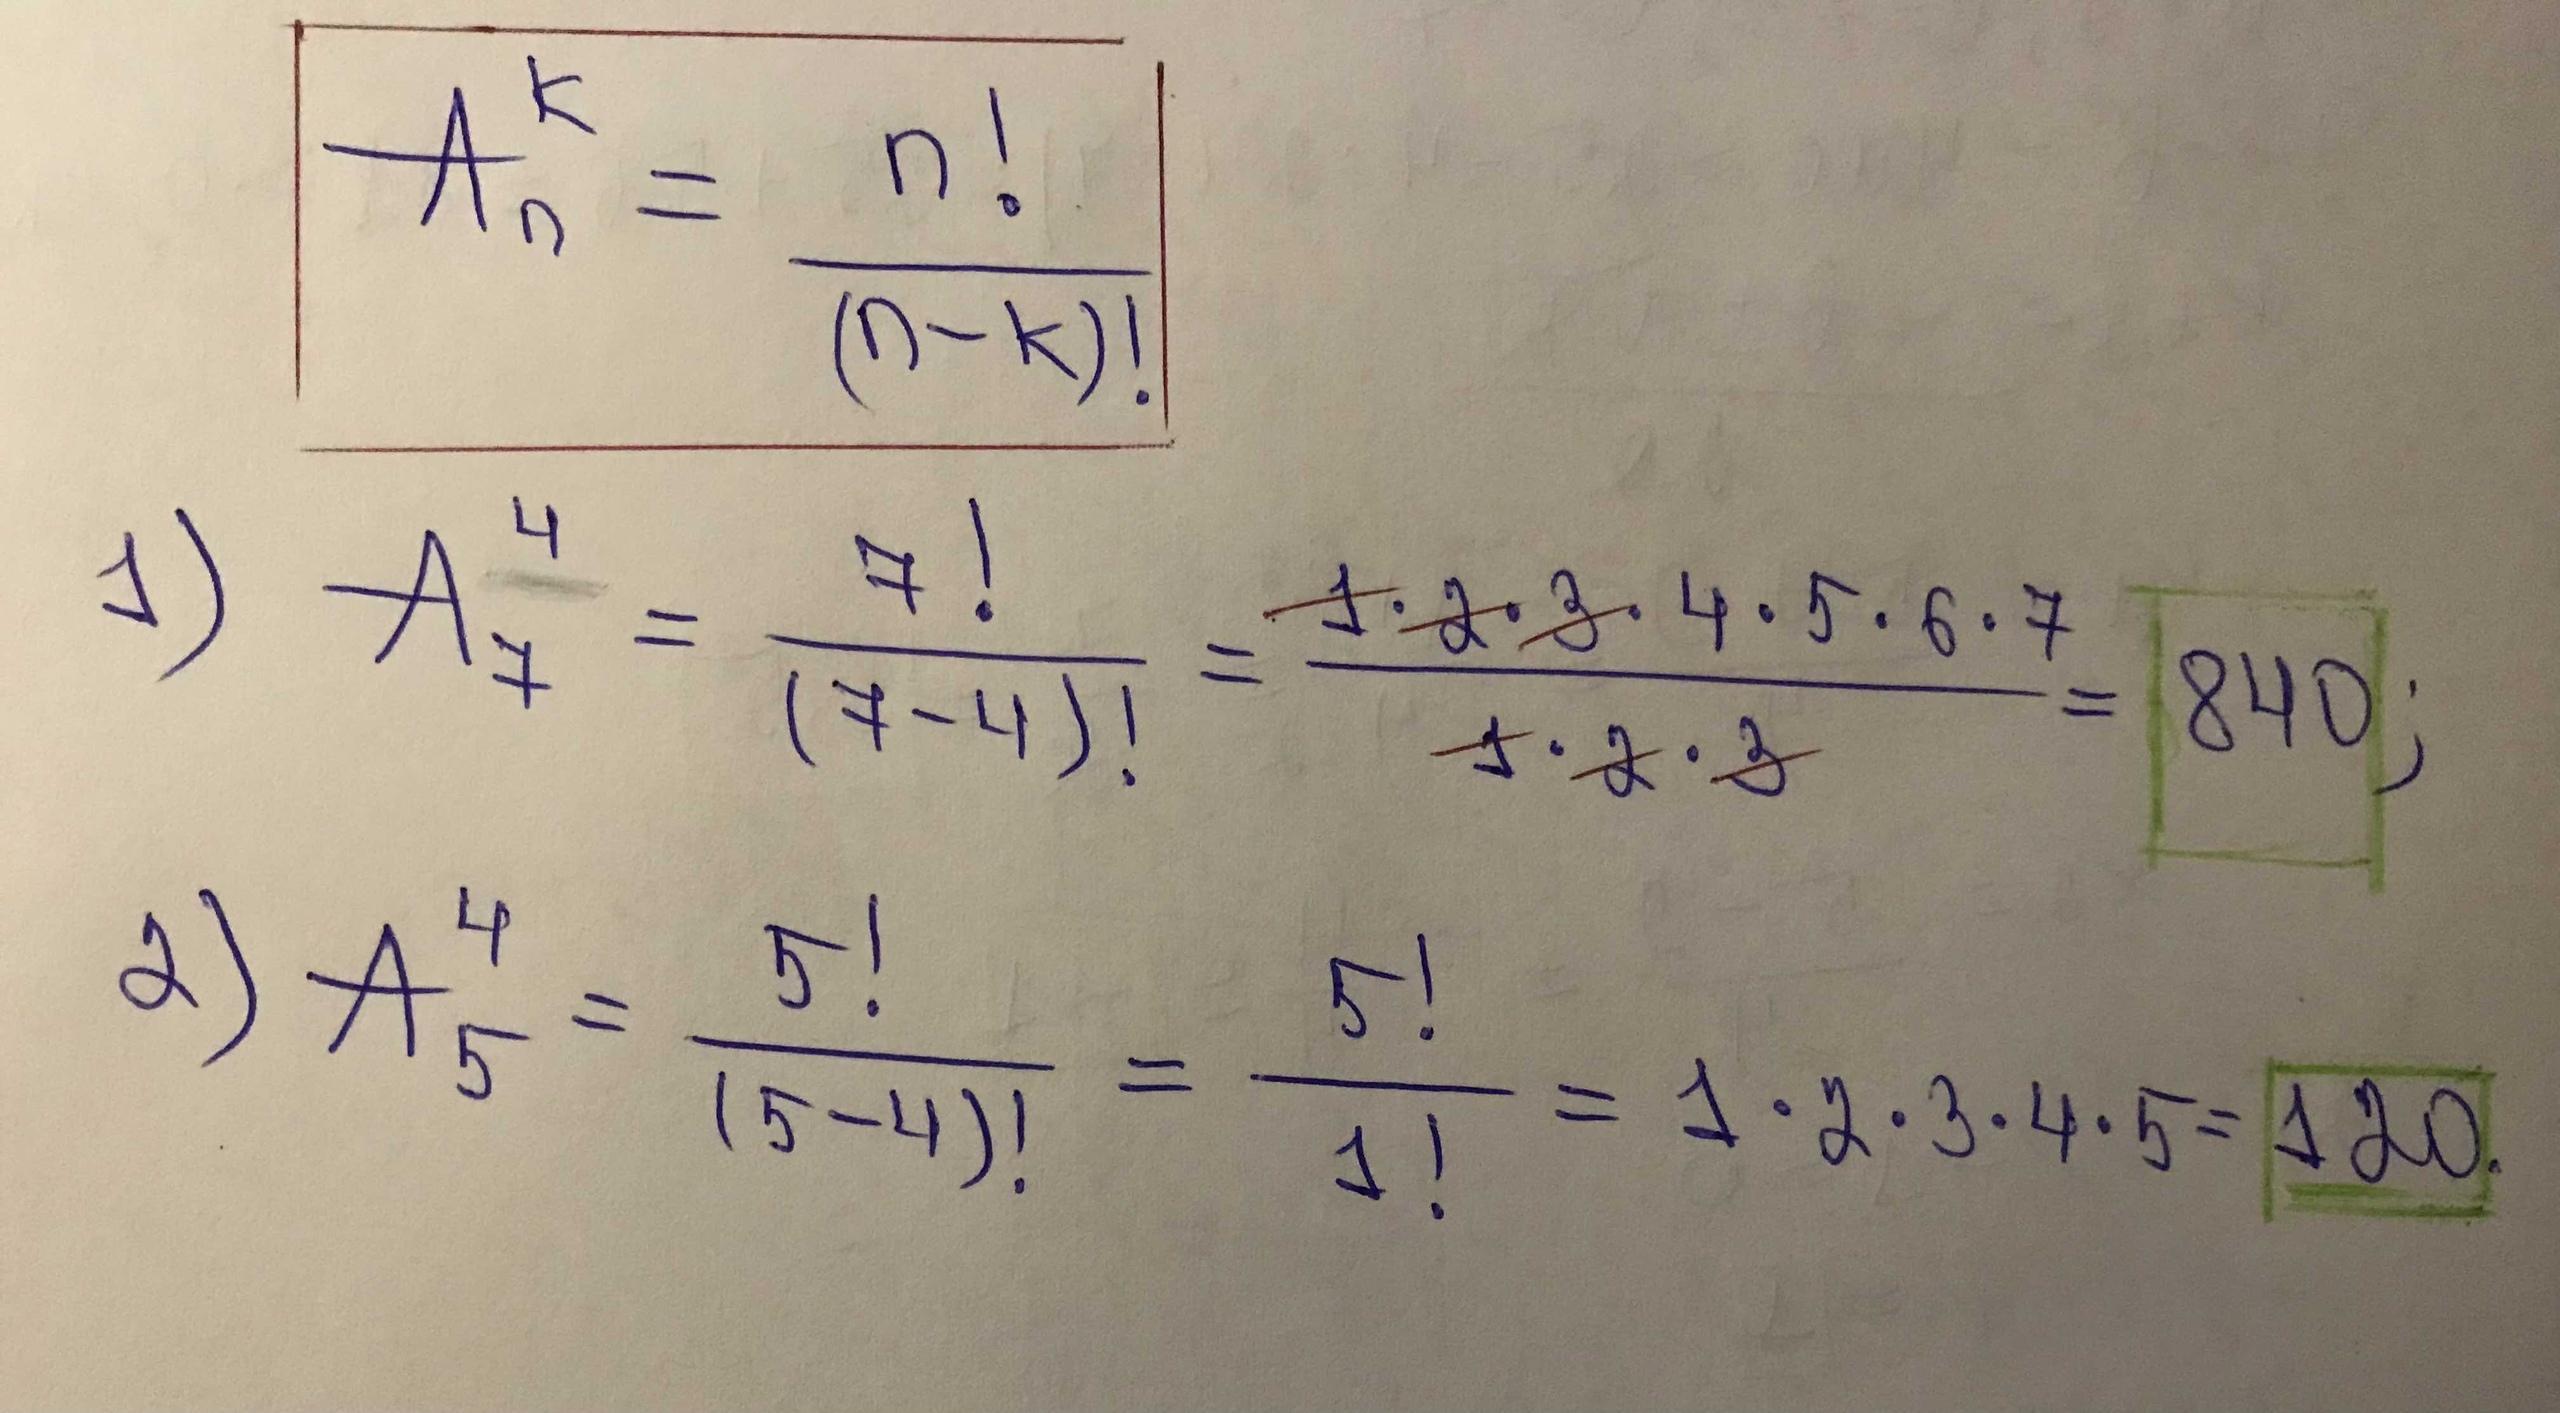 A_n^k = n! / (n-k)!
1) A_7^4 = 7! / (7-4)! = 1·2·3·4·5·6·7 / 1·2·3 = 840;
2) A_5^4 = 5! / (5-4)! = 5! / 1! = 1·2·3·4·5 = 120.